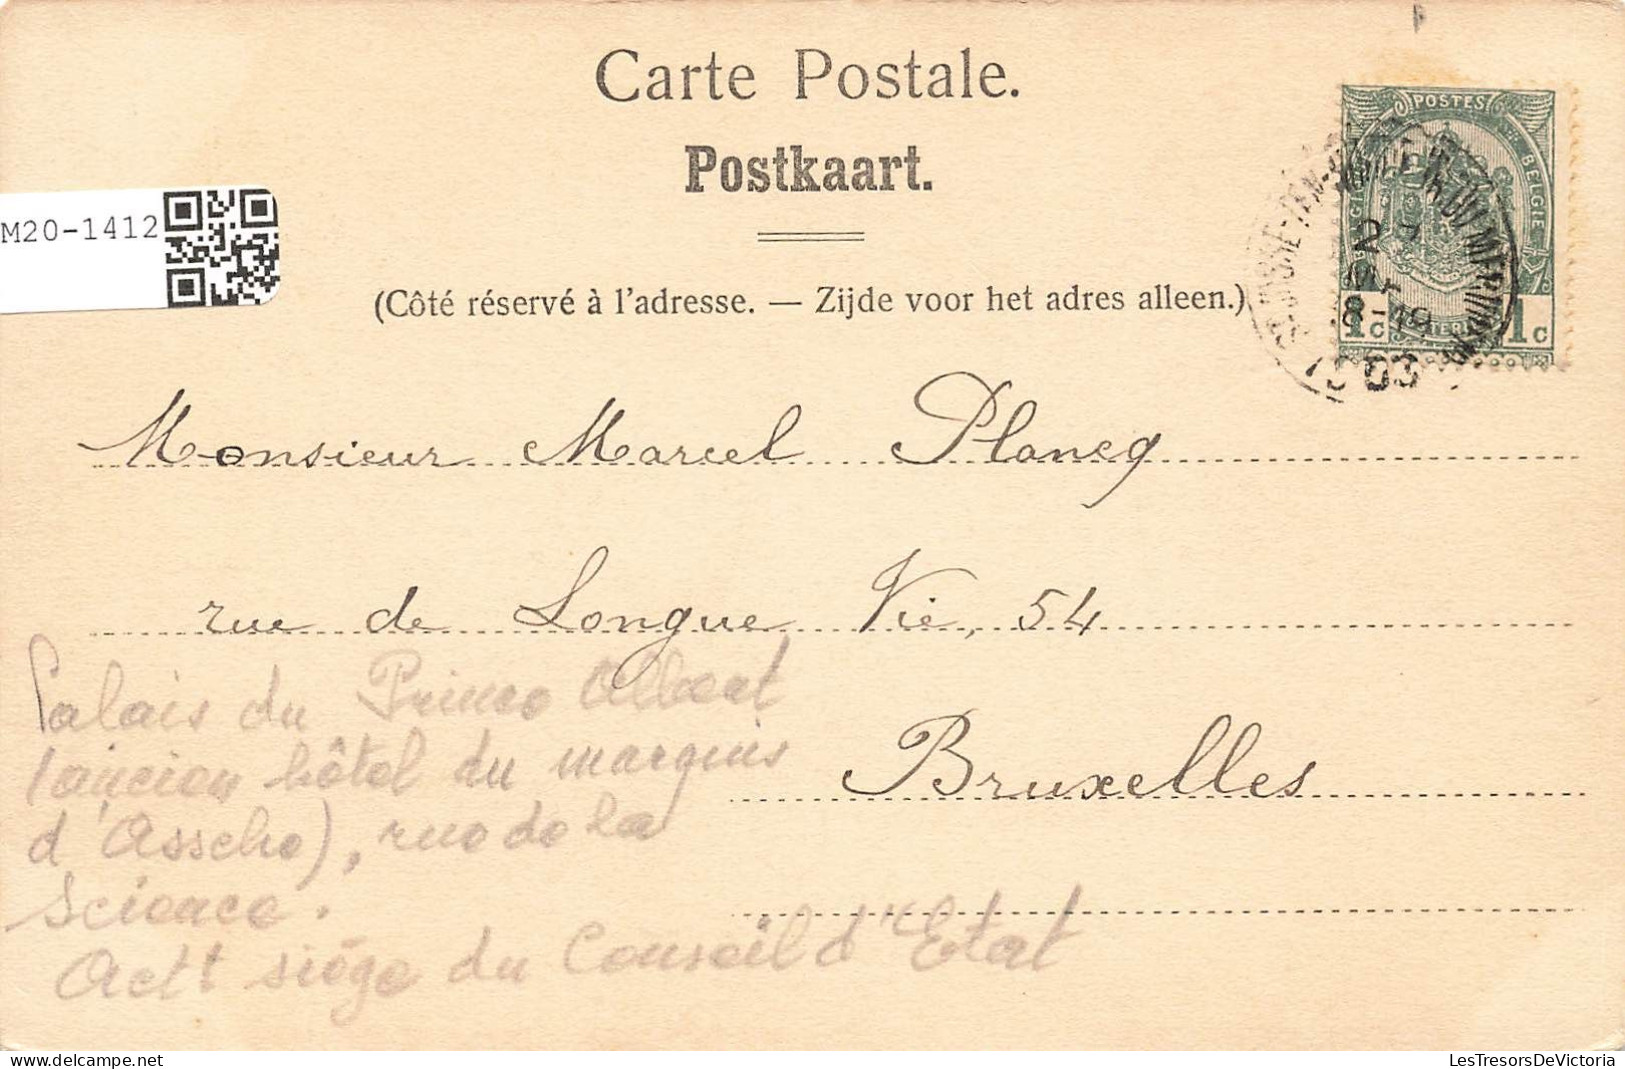 Carte Postale.
Postkaart.
M20-1412
(Côté réservé à l'adresse. — Zijde voor het adres alleen.)
POSTES
BELGIE
1c 1c
8-19
03
Monsieur Marcel Plancq
rue de Longue Vie, 54
Bruxelles
Palais du Prince Albert
(ancien hôtel du marquis
d'Assche), rue de la
Science.
Actt siège du Conseil d'Etat
LesTresorsDeVictoria